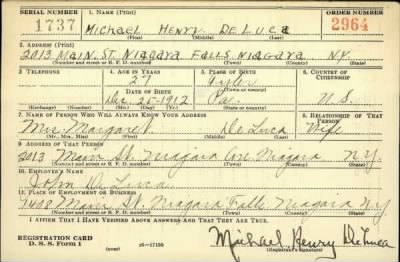 SERIAL NUMBER 1. NAME (Print) ORDER NUMBER
1737 MICHAEL HENRY DE LUCA 2964
(First) (Middle) (Last)
2. ADDRESS (Print)
2013 MAIN. ST. NIAGARA FALLS, NIAGARA N.Y.
(Number and street or R. F. D. number) (Town) (County) (State)
3. TELEPHONE 4. AGE IN YEARS 5. PLACE OF BIRTH 6. COUNTRY OF CITIZENSHIP
27 Tyler
(Town or county)
DATE OF BIRTH
Dec. 25-1912 Pa. U.S.
(Exchange) (Number) (Mo.) (Day) (Yr.) (State or country)
7. NAME OF PERSON WHO WILL ALWAYS KNOW YOUR ADDRESS 8. RELATIONSHIP OF THAT PERSON
Mrs. Margaret De Luca Wife
(Mr., Mrs., Miss) (First) (Middle) (Last)
9. ADDRESS OF THAT PERSON
2013 Main St. Niagara Niagara N.Y.
(Number and street or R. F. D. number) (Town) (County) (State)
10. EMPLOYER'S NAME
John De Luca
11. PLACE OF EMPLOYMENT OR BUSINESS
Main St. Niagara Falls Niagara N.Y.
(Number and street or R. F. D. number) (Town) (County) (State)
I AFFIRM THAT I HAVE VERIFIED ABOVE ANSWERS AND THAT THEY ARE TRUE.
REGISTRATION CARD
D. S. S. Form 1 16-17105 Michael Henry DeLuca
(Registrant's signature)